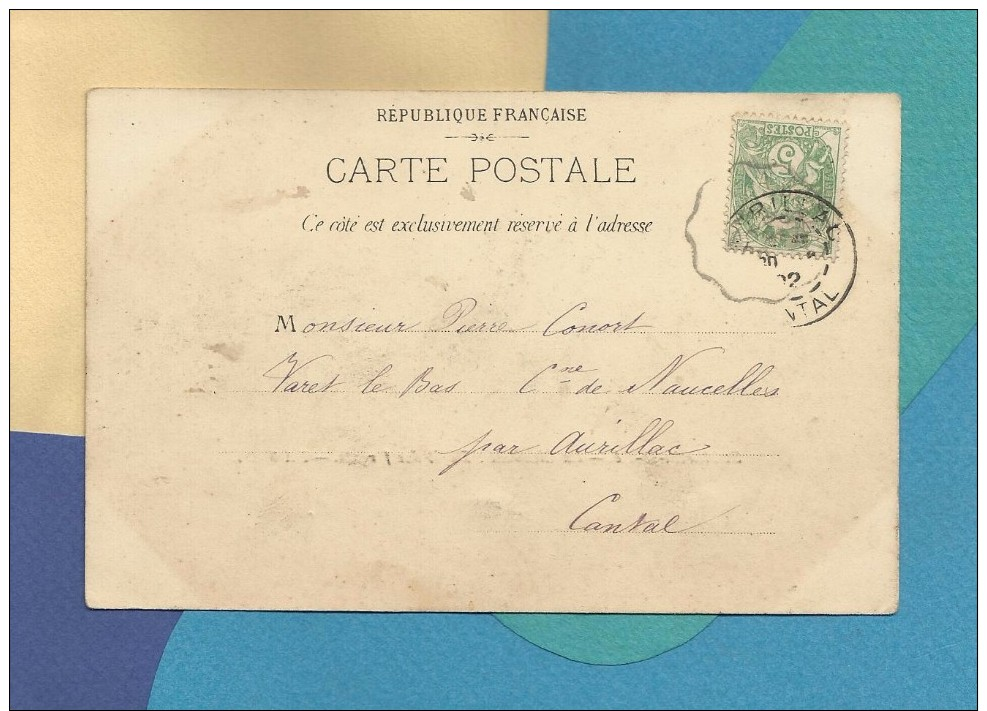 RÉPUBLIQUE FRANÇAISE
CARTE POSTALE
Ce côté est exclusivement réservé à l'adresse
POSTES
5
AURILLAC
02
CANTAL
Monsieur Pierre Conort
Varet le Bas Cne de Naucelles
par Aurillac
Cantal